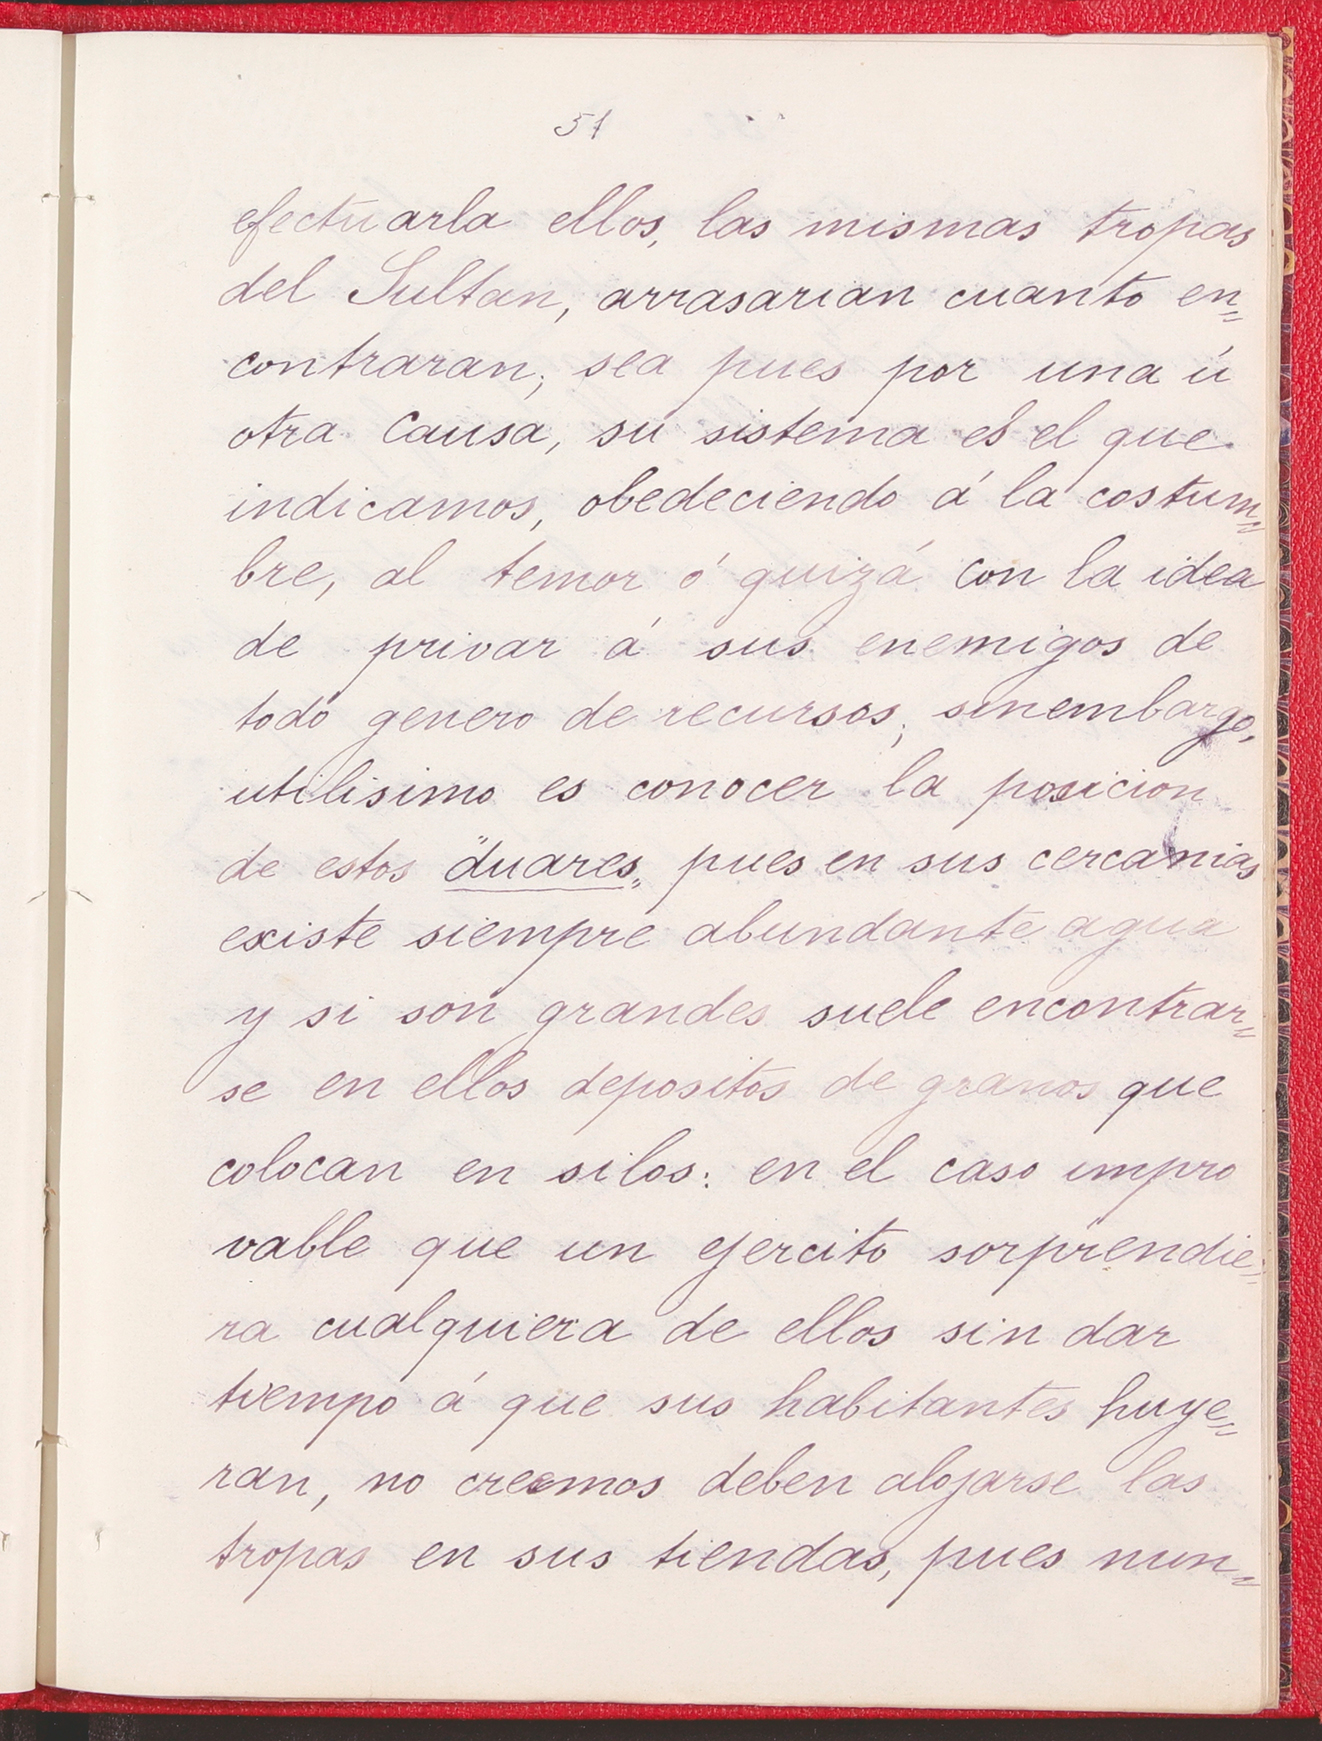 51
efectuarla ellos, las mismas tropas
del Sultan, arrasarian cuanto en=
contraran; sea pues por una ú
otra causa, su sistema es el que
indicamos, obedeciendo á la costum=
bre, al temor ó quizá con la idea
de privar á sus enemigos de
todo genero de recursos; sinembargo,
utilisimo es conocer la posicion
de estos "duares„ pues en sus cercanias
existe siempre abundante agua
y si son grandes suele encontrar=
se en ellos depositos de granos que
colocan en silos: en el caso impro
vable que un ejercito sorprendie=
ra cualquiera de ellos sin dar
tiempo á que sus habitantes huye=
ran, no creemos deben alojarse las
tropas en sus tiendas, pues nun=